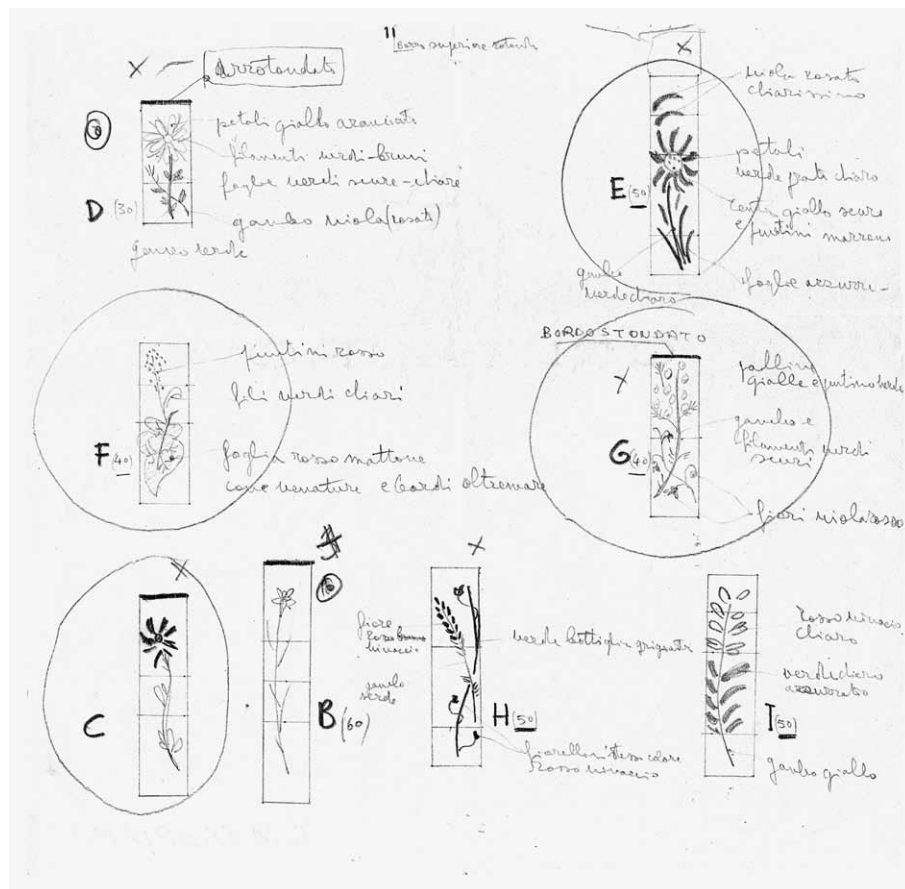 11
bordo superiore rotondo
x
arrotondato
petali giallo aranciato
filamenti verdi-bruni
foglie verdi scure-chiare
D (30)
gambo viola (rosato)
gambo verde
x
viola rosato
chiarissimo
petali
verde prato chiaro
E (50)
giallo scuro
e puntini marroni
gambo
verde chiaro
foglie azzurre
puntini rosso
fili verdi chiari
F (40)
foglia rosso mattone
venature e bordi oltremare
BORDO STONDATO
x
palline
gialle e puntino verde
gambo e
filamenti verdi
scuri
G (40)
fiori viola rosso
x
C
B (60)
x
fiore
rosso
vinaccio
verde bottiglia grigiastri
gambo
verde
H (50)
fiorellini stesso colore
rosso vinaccio
rosso vinaccio
chiaro
verde chiaro
azzurrato
I (50)
gambo giallo